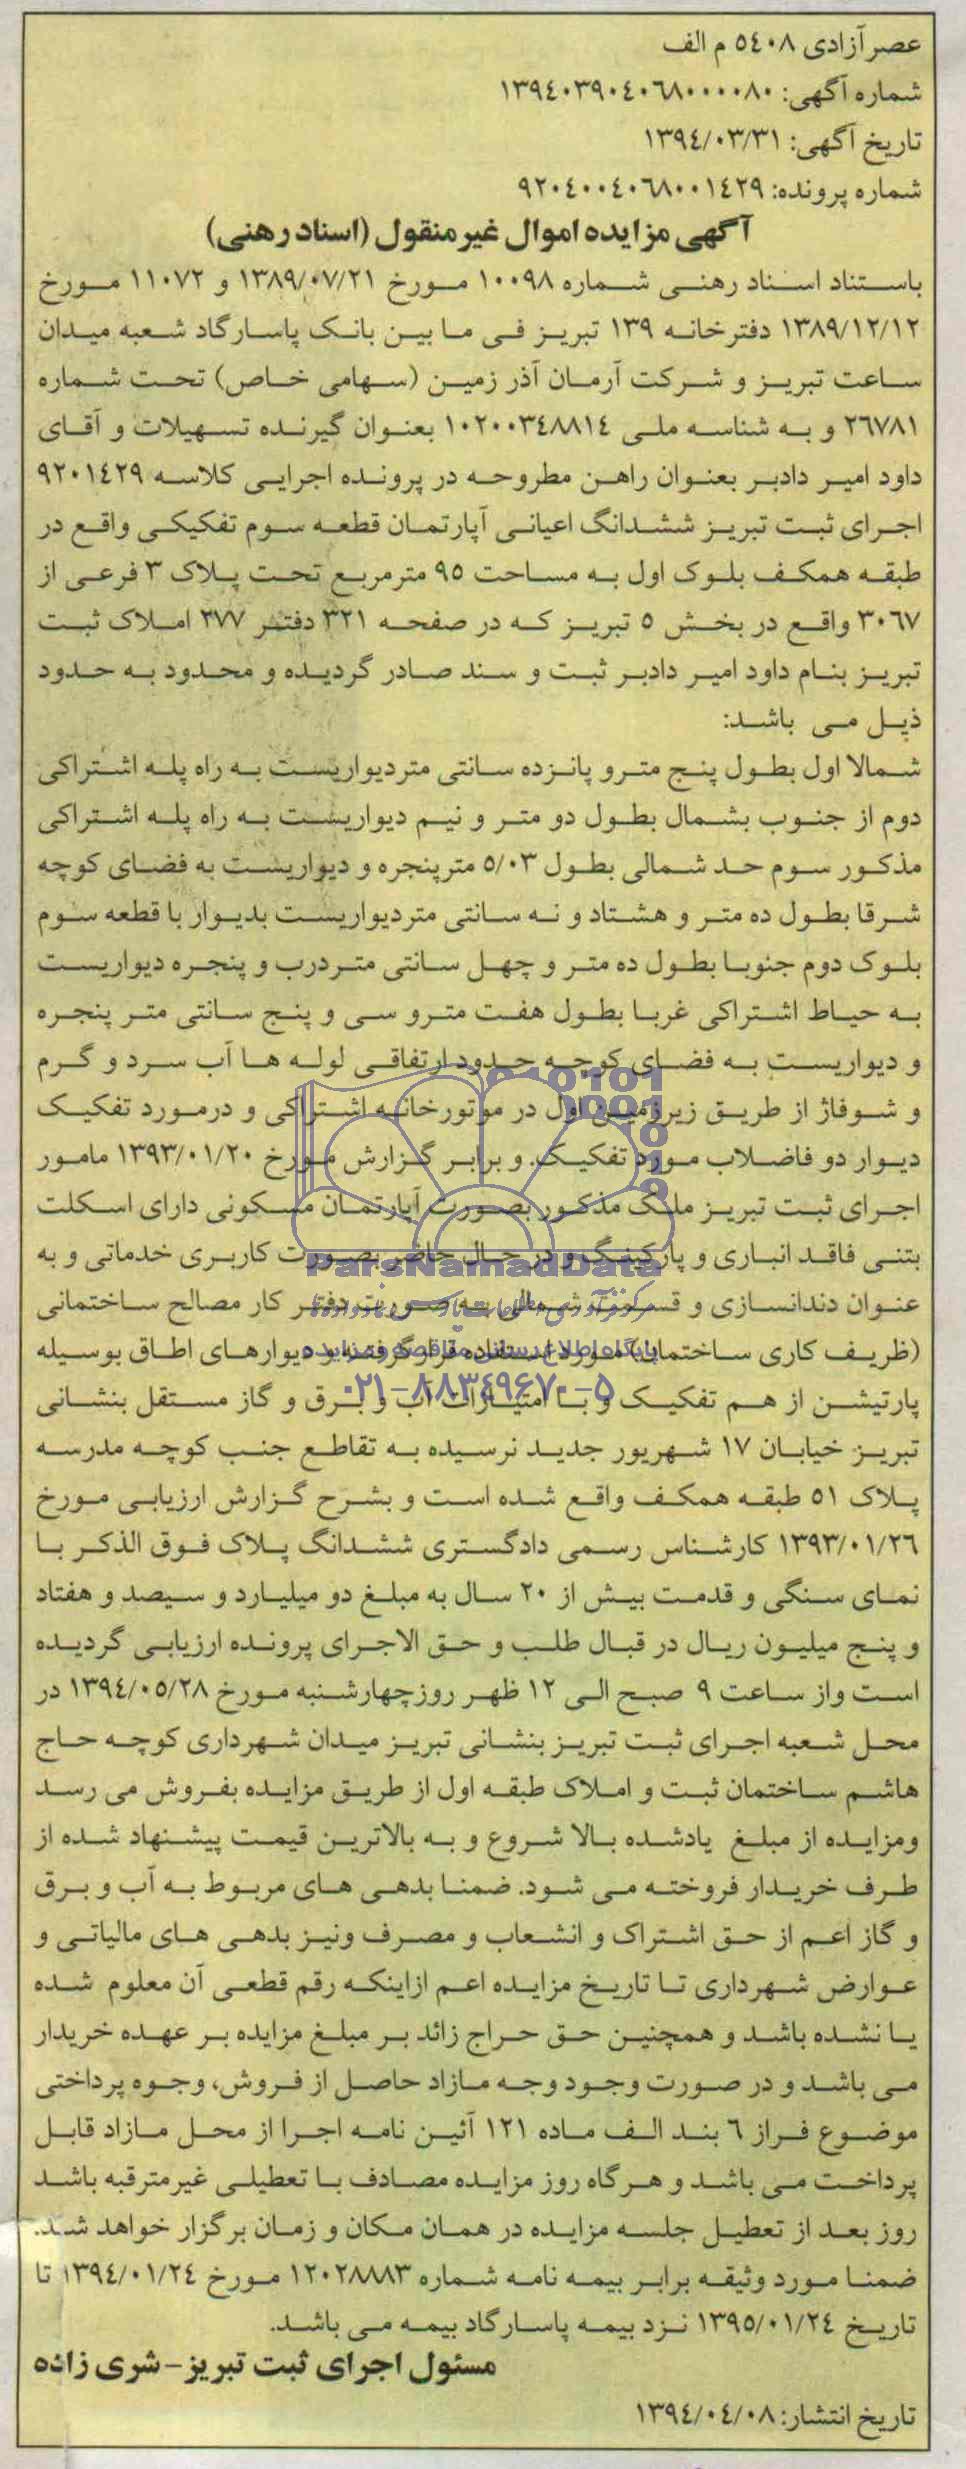 عصر آزادی ٥٤٠٨ م الف
شماره آگهی: ١٣٩٤٠٣٩٠٤٠٦٨٠٠٠٠٨٠
تاریخ آگهی: ١٣٩٤/٠٣/٣١
شماره پرونده: ٩٢٠٤٠٠٤٠٦٨٠٠١٤٢٩
آگهی مزایده اموال غیر منقول (اسناد رهنی)
باستناد اسناد رهنی شماره ١٠٠٩٨ مورخ ١٣٨٩/٠٧/٢١ و ١١٠٧٢ مورخ
١٣٨٩/١٢/١٢ دفترخانه ١٣٩ تبریز فی ما بین بانک پاسارگاد شعبه میدان
ساعت تبریز و شرکت آرمان آذر زمین (سهامی خاص) تحت شماره
٢٦٧٨١ و به شناسه ملی ١٠٢٠٠٣٤٨٨١٤ بعنوان گیرنده تسهیلات و آقای
داود امیر دادبر بعنوان راهن مطروحه در پرونده اجرایی کلاسه ٩٢٠١٤٢٩
اجرای ثبت تبریز ششدانگ اعیانی آپارتمان قطعه سوم تفکیکی واقع در
طبقه همکف بلوک اول به مساحت ٩٥ مترمربع تحت پلاک ٣ فرعی از
٣٠٦٧ واقع در بخش ٥ تبریز که در صفحه ٣٢١ دفتر ٢٧٧ املاک ثبت
تبریز بنام داود امیر دادبر ثبت و سند صادر گردیده و محدود به حدود
ذیل می باشد:
شمالا اول بطول پنج مترو پانزده سانتی متر دیواریست به راه پله اشتراکی
دوم از جنوب بشمال بطول دو متر و نیم دیواریست به راه پله اشتراکی
مذکور سوم حد شمالی بطول ٥/٠٣ مترپنجره و دیواریست به فضای کوچه
شرقا بطول ده متر و هشتاد و نه سانتی متر دیواریست بدیوار با قطعه سوم
بلوک دوم جنوبا بطول ده متر و چهل سانتی متر درب و پنجره دیواریست
به حیاط اشتراکی غربا بطول هفت مترو سی و پنج سانتی متر پنجره
و دیواریست به فضای کوچه حدود ارتفاقی لوله ها آب سرد و گرم
و شوفاژ از طریق زیرزمین اول در موتورخانه اشتراکی و درمورد تفکیک
دیوار دو فاضلاب مورد تفکیک. و برابر گزارش مورخ ١٣٩٣/٠١/٢٠ مامور
اجرای ثبت تبریز ملک مذکور بصورت آپارتمان مسکونی دارای اسکلت
بتنی فاقد انباری و پارکینگ و در حال حاضر بصورت کاربری خدماتی و به
عنوان دندانسازی و قسمت شمالی به صورت دفتر کار مصالح ساختمانی
(ظریف کاری ساختمان) مورد استفاده قرار گرفته و دیوارهای اطاق بوسیله
پارتیشن از هم تفکیک و با امتیازات آب و برق و گاز مستقل بنشانی
تبریز خیابان ١٧ شهریور جدید نرسیده به تقاطع جنب کوچه مدرسه
پلاک ٥١ طبقه همکف واقع شده است و بشرح گزارش ارزیابی مورخ
١٣٩٣/٠١/٢٦ کارشناس رسمی دادگستری ششدانگ پلاک فوق الذکر با
نمای سنگی و قدمت بیش از ٢٠ سال به مبلغ دو میلیارد و سیصد و هفتاد
و پنج میلیون ریال در قبال طلب و حق الاجرای پرونده ارزیابی گردیده
است واز ساعت ٩ صبح الی ١٢ ظهر روزچهارشنبه مورخ ١٣٩٤/٠٥/٢٨ در
محل شعبه اجرای ثبت تبریز بنشانی تبریز میدان شهرداری کوچه حاج
هاشم ساختمان ثبت و املاک طبقه اول از طریق مزایده بفروش می رسد
ومزایده از مبلغ یادشده بالا شروع و به بالاترین قیمت پیشنهاد شده از
طرف خریدار فروخته می شود. ضمنا بدهی های مربوط به آب و برق
و گاز اعم از حق اشتراک و انشعاب و مصرف ونیز بدهی های مالیاتی و
عوارض شهرداری تا تاریخ مزایده اعم ازاینکه رقم قطعی آن معلوم شده
یا نشده باشد و همچنین حق حراج زائد بر مبلغ مزایده بر عهده خریدار
می باشد و در صورت وجود وجه مازاد حاصل از فروش، وجوه پرداختی
موضوع فراز ٦ بند الف ماده ١٢١ آئین نامه اجرا از محل مازاد قابل
پرداخت می باشد و هرگاه روز مزایده مصادف با تعطیلی غیرمترقبه باشد
روز بعد از تعطیل جلسه مزایده در همان مکان و زمان برگزار خواهد شد.
ضمنا مورد وثیقه برابر بیمه نامه شماره ١٢٠٢٨٨٨٣ مورخ ١٣٩٤/٠١/٢٤ تا
تاریخ ١٣٩٥/٠١/٢٤ نزد بیمه پاسارگاد بیمه می باشد.
مسئول اجرای ثبت تبریز - شری زاده
تاریخ انتشار: ١٣٩٤/٠٤/٠٨
ParsNamadData
پایگاه اطلاع رسانی مناقصه و مزایده
۰۲۱-۸۸۳۴۹۶۷۰-۵